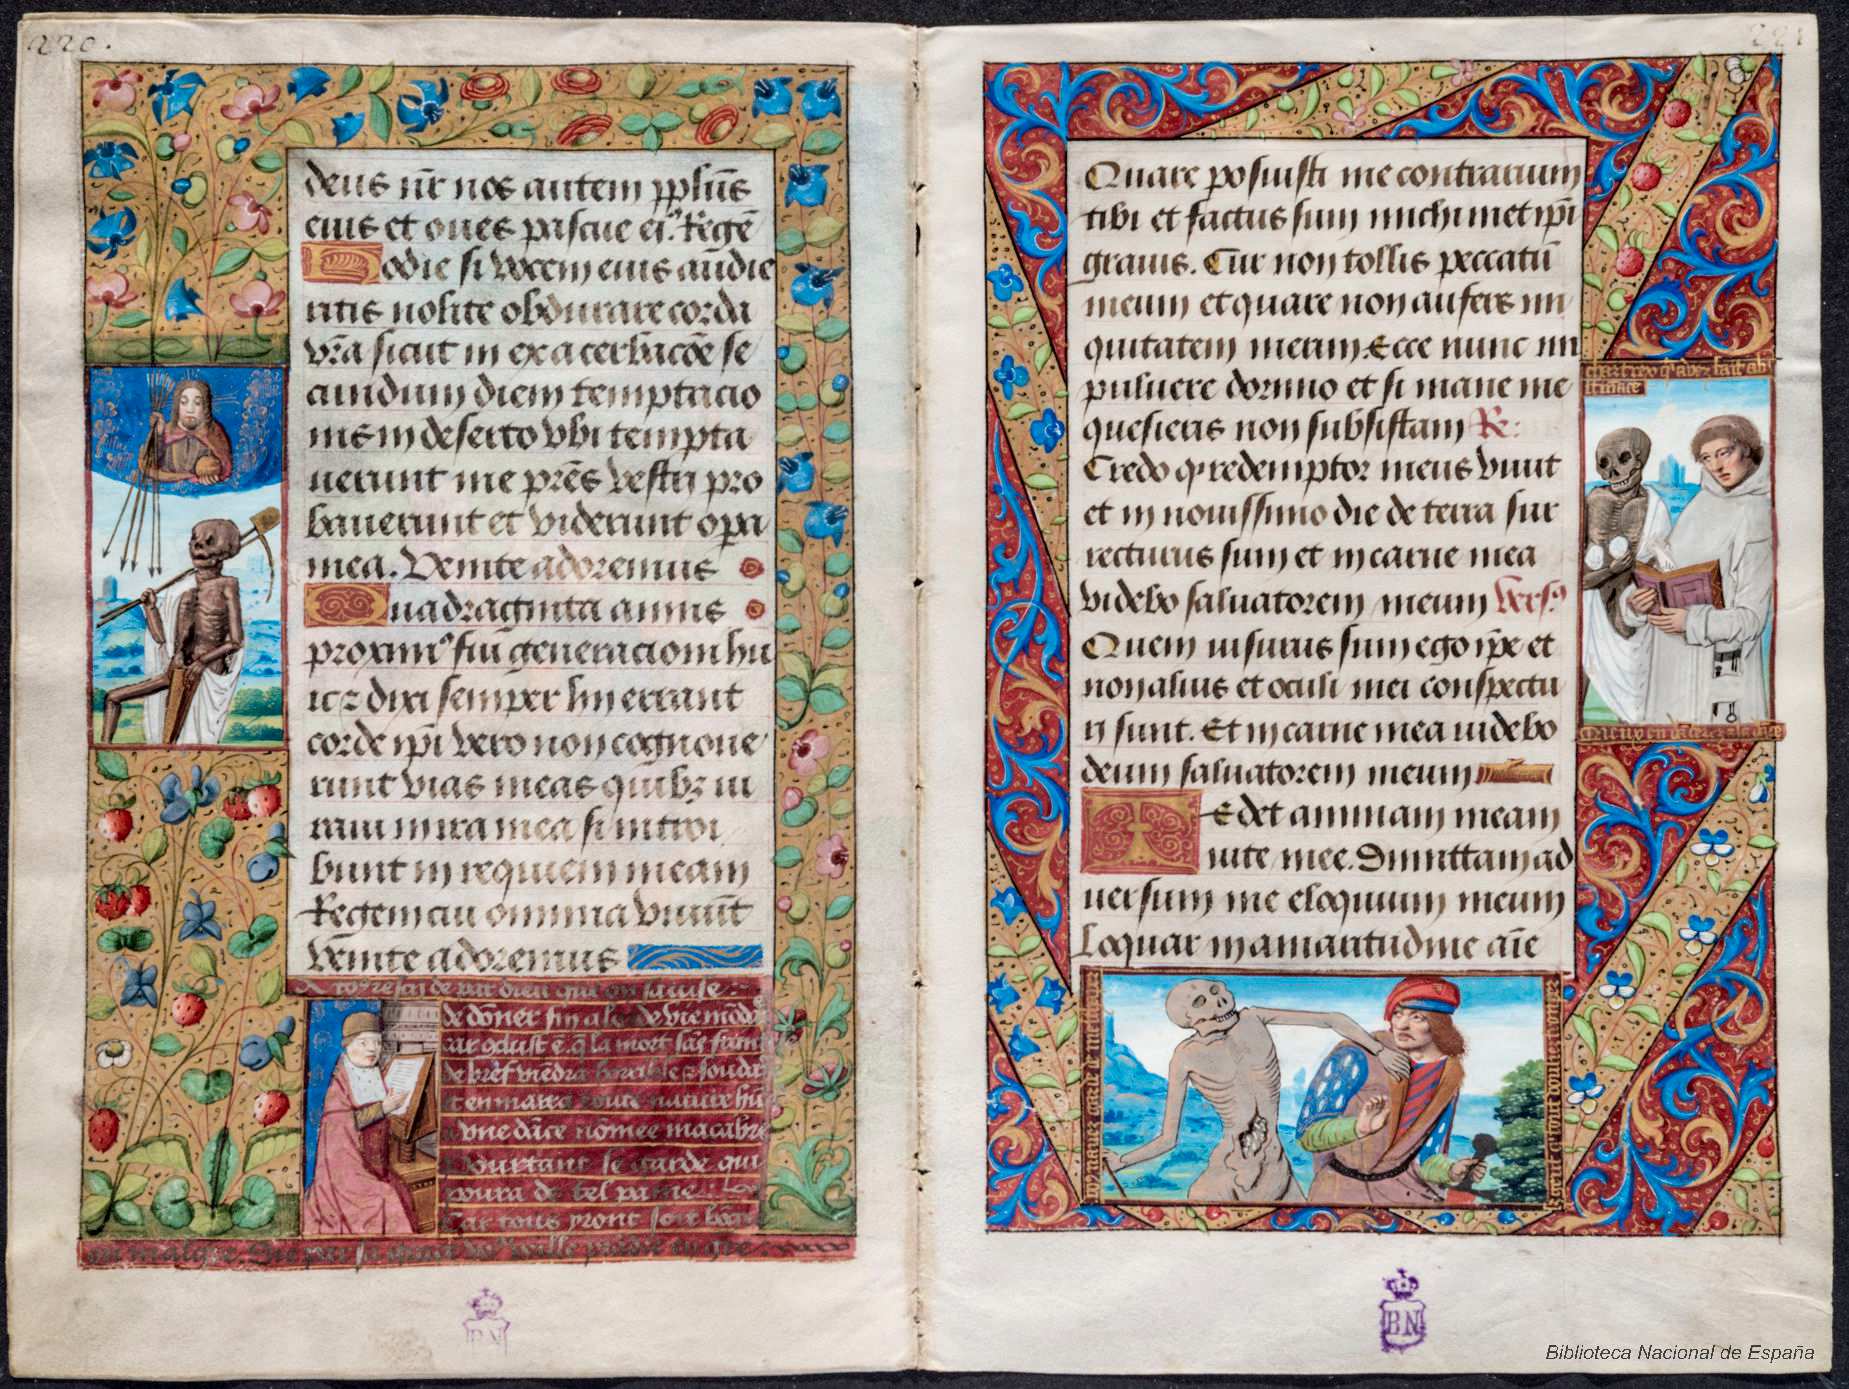 220.
deus nr̄ nos autem pplūs
eius et oues pascue ei9. Regē
odie si vocem eius audie
ritis nolite obdurare corda
vrā sicut in exacerbacōe se
cundum diem temptacio
nis in deserto vbi tempta
uerunt me prēs vestri pro
bauerunt et viderunt opa
mea. Venite adoremus
uadraginta annis
proxim9 fui generacioni hu
ic z dixi semper hii errant
corde ipi vero non cognoue
runt vias meas quibz iu
raui in ira mea si introi
bunt in requiem meam
Regem cui omnia viuūt
Venite adoremus
de dōner fin a
la mort
de bref viēdra horrible z souda
toute nature hū
vne dāce nōmee macabre
Pourtant se garde qui
de tel
Car tous
221
Quare posuisti me contrarium
tibi et factus sum michimet ipi
grauis. Cur non tollis peccatū
meum et quare non aufers ini
quitatem meam. Ecce nunc in
puluere dormio et si mane me
quesieris non subsistam Re:
Credo q redemptor meus viuit
et in nouissimo die de terra sur
recturus sum et in carne mea
videbo saluatorem meum vers9
Quem uisurus sum ego ipe et
non alius et oculi mei conspectu
ri sunt. Et in carne mea uidebo
deum saluatorem meum
Edet animam meam
uite mee. Dimittam ad
uersum me eloquium meum
loquar in amaritudine aīe
BN
BN
Biblioteca Nacional de España